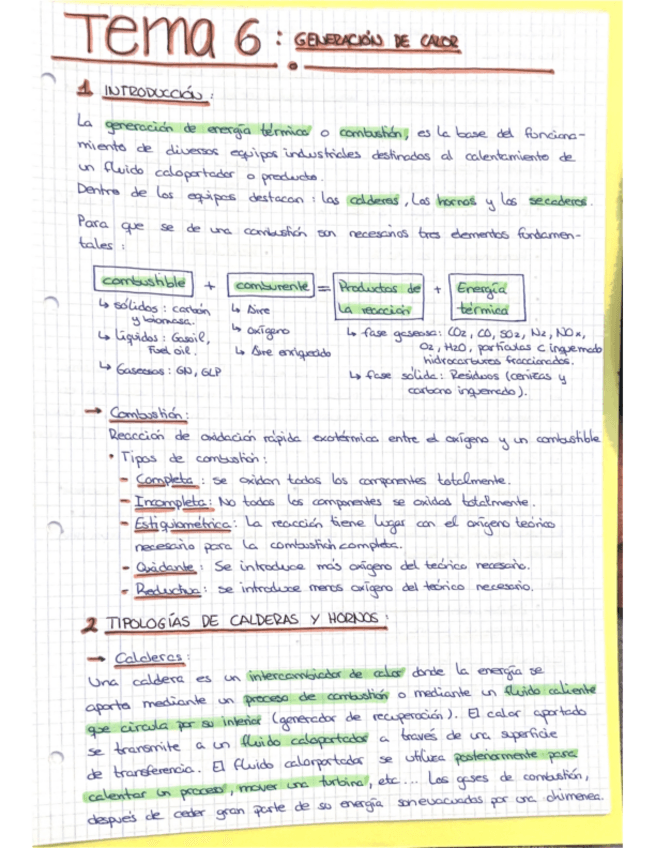 Tema 6 : GENERACIÓN DE CALOR
1 INTRODUCCIÓN :
La generación de energía térmica o combustión, es la base del funciona-
miento de diversos equipos industriales destinados al calentamiento de
un fluido caloportador o producto.
Dentro de los equipos destacan : las calderas, los hornos y los secaderos.
Para que se de una combustión son necesarios tres elementos fundamen-
tales :
combustible + comburente = Productos de la reacción + Energía térmica
↳ sólidos : carbón y biomasa.
↳ líquidos : Gasoil, Fuel oil.
↳ Gaseosos : GN, GLP
↳ Aire
↳ oxígeno
↳ Aire enriquecido
↳ fase gaseosa : CO2, CO, SO2, N2, NOx,
O2, H2O, partículas C inquemado
hidrocarburos fraccionados.
↳ fase sólida : Residuos (cenizas y
carbono inquemado).
→ Combustión :
Reacción de oxidación rápida exotérmica entre el oxígeno y un combustible
• Tipos de combustión :
- Completa : se oxidan todos los componentes totalmente.
- Incompleta : No todos los componentes se oxidas totalmente.
- Estiquiométrica : La reacción tiene lugar con el oxígeno teórico
necesario para la combustión completa.
- Oxidante : Se introduce más oxígeno del teórico necesario.
- Reductiva : se introduce menos oxígeno del teórico necesario.
2 TIPOLOGÍAS DE CALDERAS Y HORNOS :
→ Calderas :
Una caldera es un intercambiador de calor donde la energía se
aporta mediante un proceso de combustión o mediante un fluido caliente
que circula por su interior (generador de recuperación). El calor aportado
se transmite a un fluido caloportador a través de una superficie
de transferencia. El fluido calorportador se utiliza posteriormente para
calentar un proceso, mover una turbina, etc... Los gases de combustión,
después de ceder gran parte de su energía son evacuados por una chimenea.